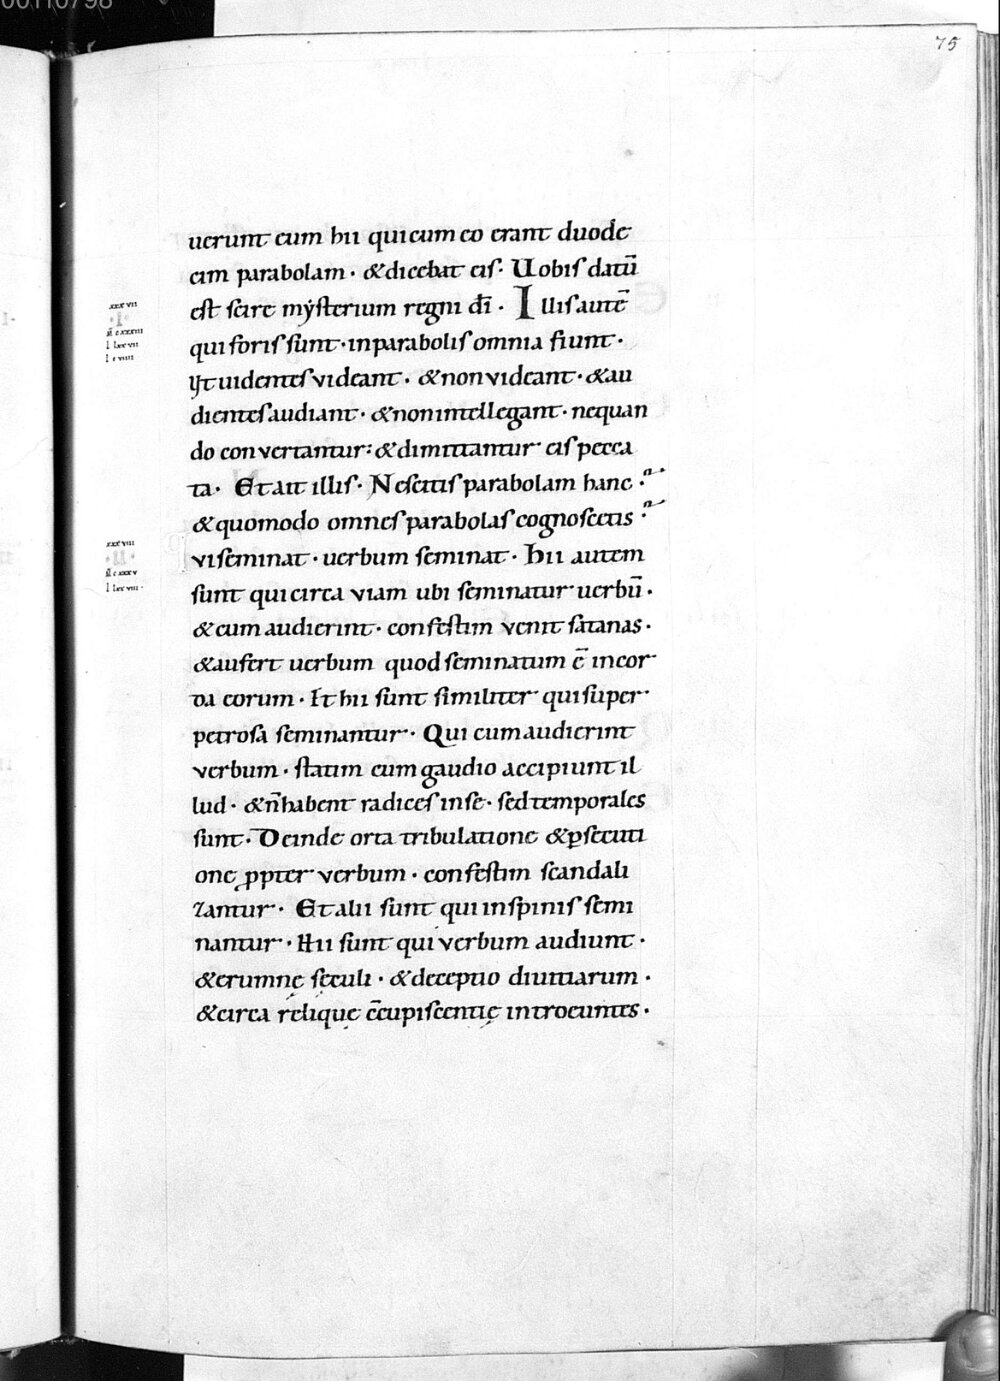 00110798
75
uerunt eum hii qui cum eo erant duode
cim parabolam · & dicebat eis · Uobis datū
est scire mysterium regni dī · Illis autē
qui foris sunt · in parabolis omnia fiunt ·
Ut uidentes videant · & non videant · & au
dientes audiant · & non intellegant · nequan
do convertantur : & dimittantur eis pecca
ta · Et ait illis · Nescitis parabolam hanc ·
& quomodo omnes parabolas cognoscetis ·
vi seminat · uerbum seminat · hii autem
sunt qui circa viam ubi seminatur uerbū ·
& cum audierint · confestim venit satanas ·
& aufert uerbum quod seminatum ē in cor
da eorum · Et hii sunt similiter qui super
petrosa seminantur · Qui cum audierint
verbum · statim cum gaudio accipiunt il
lud · & n̄ habent radices in se · sed temporales
sunt · Deinde orta tribulatione & ꝑsecuti
one ꝓpter verbum · confestim scandali
zantur · Et alii sunt qui in spinis semi
nantur · Hii sunt qui verbum audiunt ·
& erumnę sęculi · & deceptio diuitiarum ·
& circa reliquę c̄cupiscentię introeuntes ·
xxxvii
·I·
m̄ cxxxiii
l lxxvii
xxxviii
·II·
m̄ cxxxv
l lxxviii ·